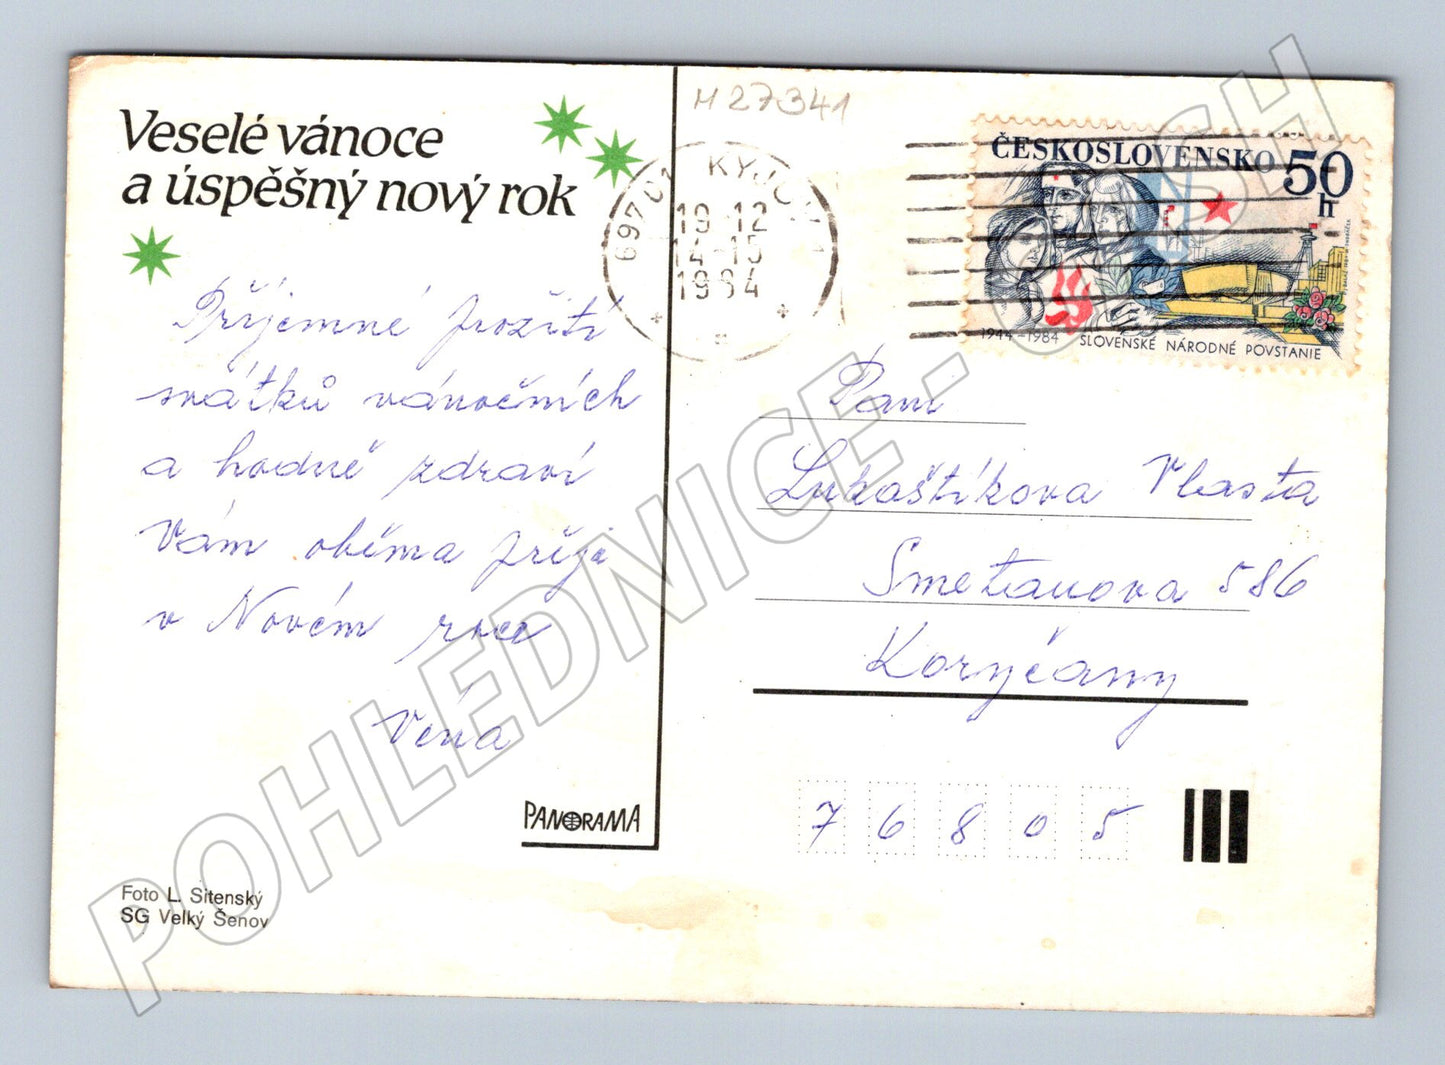 Veselé vánoce
a úspěšný nový rok
Příjemné prožití
svátků vánočních
a hodně zdraví
Vám oběma přeje
v Novém roce
Věna
PANORAMA
Foto L. Sitenský
SG Velký Šenov
H 27341
697 01 KYJOV 1
19.12
14-15
1984
ČESKOSLOVENSKO 50
h
1944-1984 SLOVENSKÉ NÁRODNÉ POVSTANIE
Paní
Lukaštíkova Vlasta
Smetanova 586
Koryčany
76805
POHLEDNICE-CESH